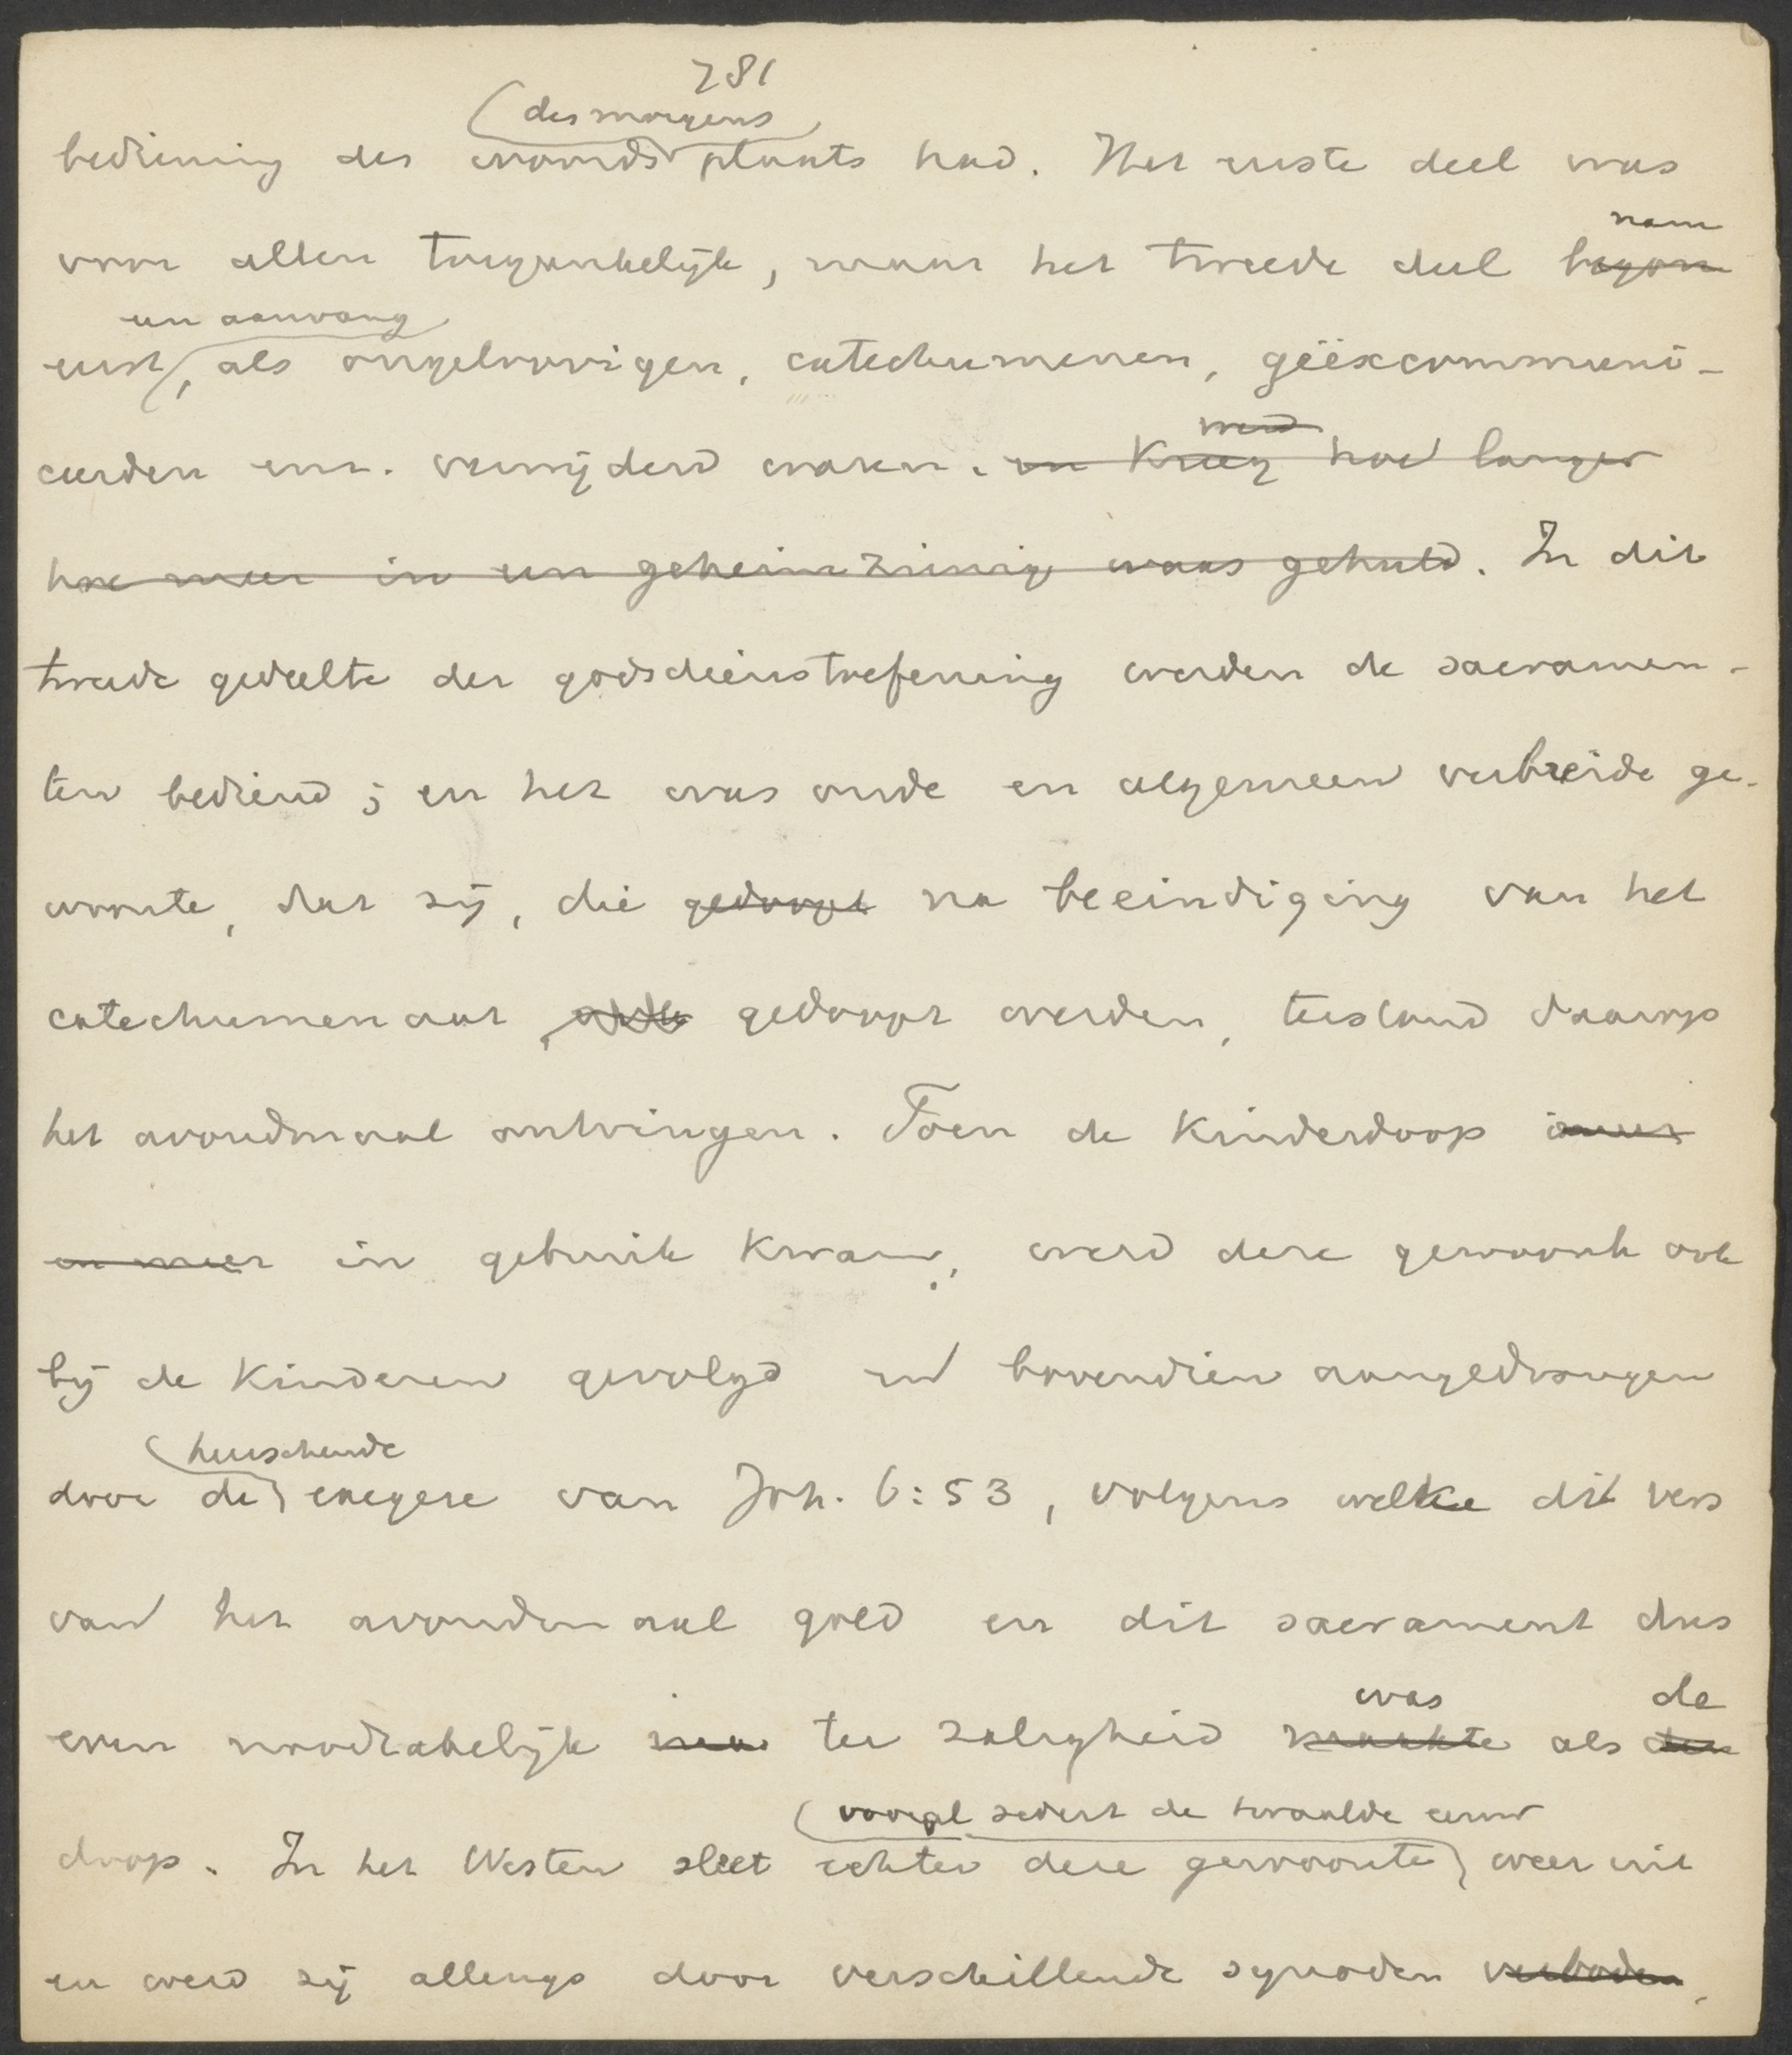 781
des morgens
bediening des woords plaats had. Het eerste deel was
nam
voor allen toegankelijk, maar het tweede deel begon
een aanvang
eerst, als ongeloovigen, catechumenen, geëxcommuni-
werd
ceerden enz. verwijderd waren. en kreeg hoe langer
hoe meer in een geheimzinnig waas gehuld. In dit
tweede gedeelte der godsdienstoefening werden de sacramen-
ten bediend; en het was oude en algemeen verbreide ge-
woonte, dat zij, die gedoopt na beeindiging van het
catechumenaat gedoopt werden, terstond daarop
het avondmaal ontvingen. Toen de kinderdoop meer
en meer in gebruik kwam, werd deze gewoonte ook
bij de kinderen gevolgd en bovendien aangedrongen
heerschende
door de exegese van Joh. 6:53, volgens welke dit vers
van het avondmaal gold en dit sacrament dus
was de
even noodzakelijk ter zaligheid maakte als den
vooral sedert de twaalfde eeuw
doop. In het Westen sleet echter deze gewoonte weer uit
en werd zij allengs door verschillende synoden verboden,